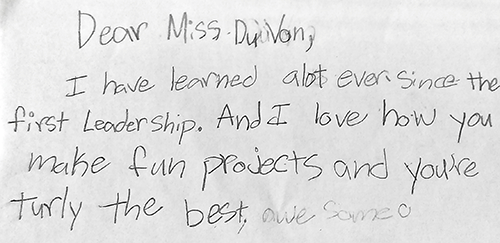 Dear Miss. DuiVon,
I have learned alot ever since the
first Leadership. And I love how you
make fun projects and you're
turly the best, awesome